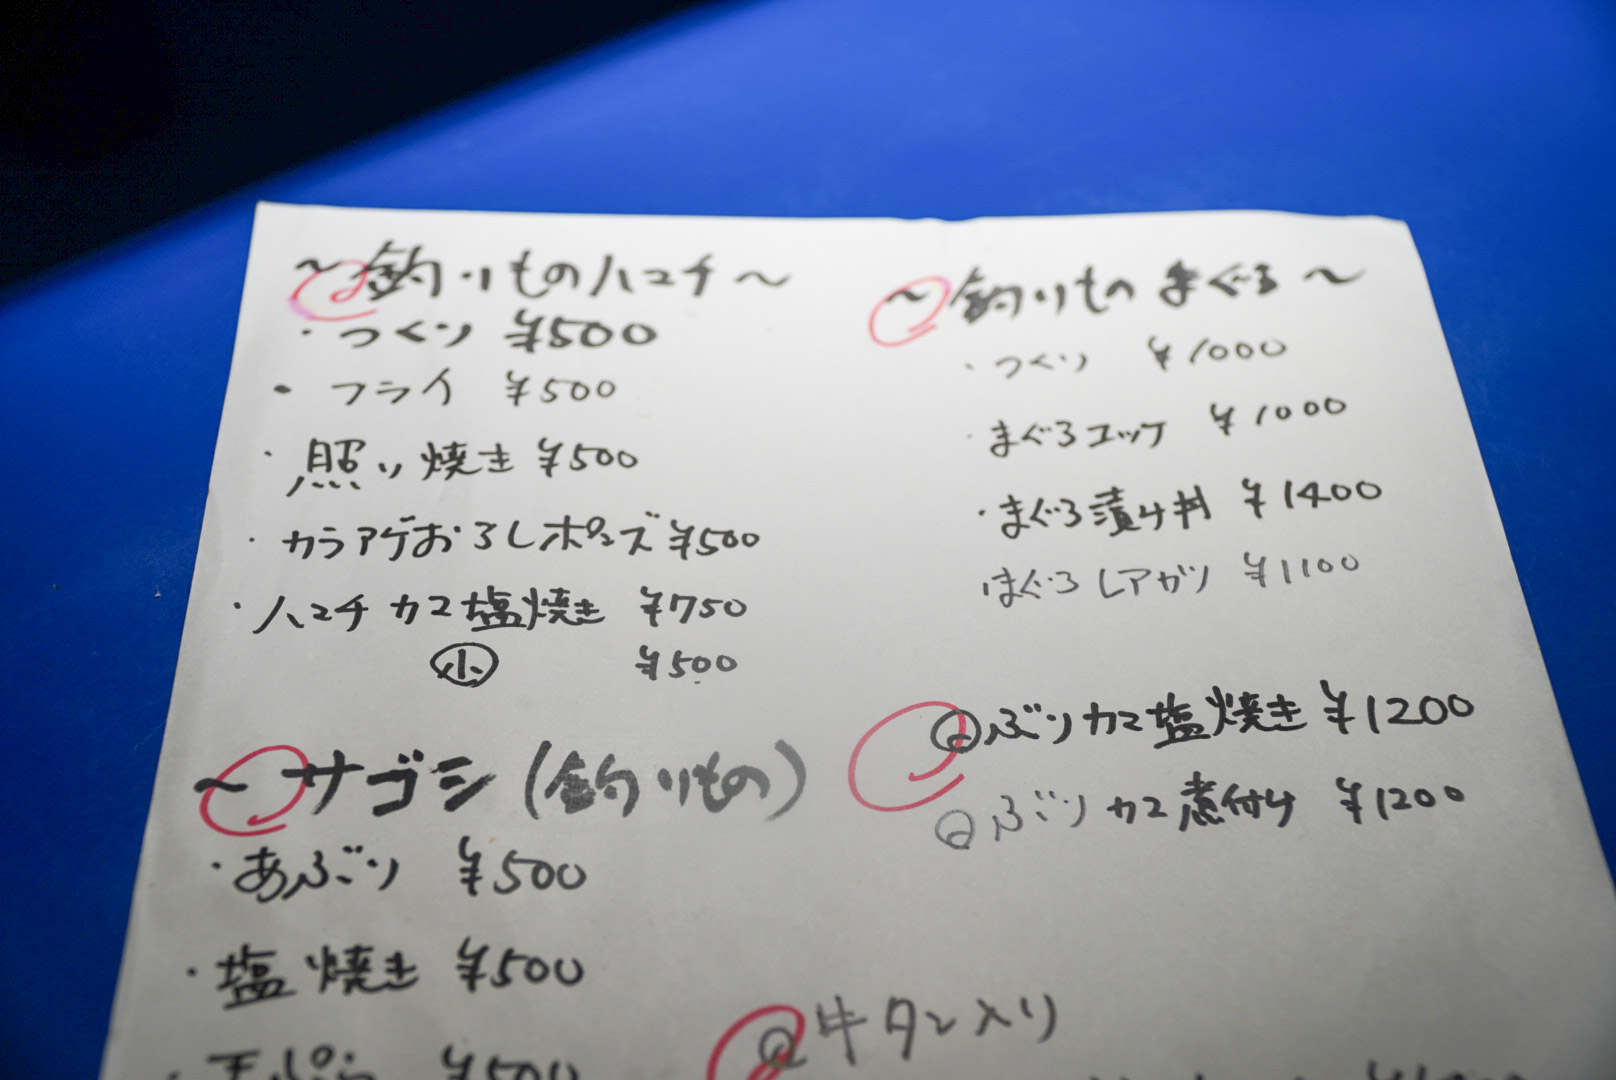 ～釣りものハマチ～
・つくり ¥500
・フライ ¥500
・照り焼き ¥500
・カラアゲおろしポンズ ¥500
・ハマチカマ塩焼き ¥750
小 ¥500
～サゴシ(釣りもの)
・あぶり ¥500
・塩焼き ¥500
・天ぷら ¥500
～釣りものまぐろ～
・つくり ¥1000
・まぐろユッケ ¥1000
・まぐろ漬け丼 ¥1400
まぐろレアカツ ¥1100
ぶりカマ塩焼き ¥1200
ぶりカマ煮付け ¥1200
牛タン入り